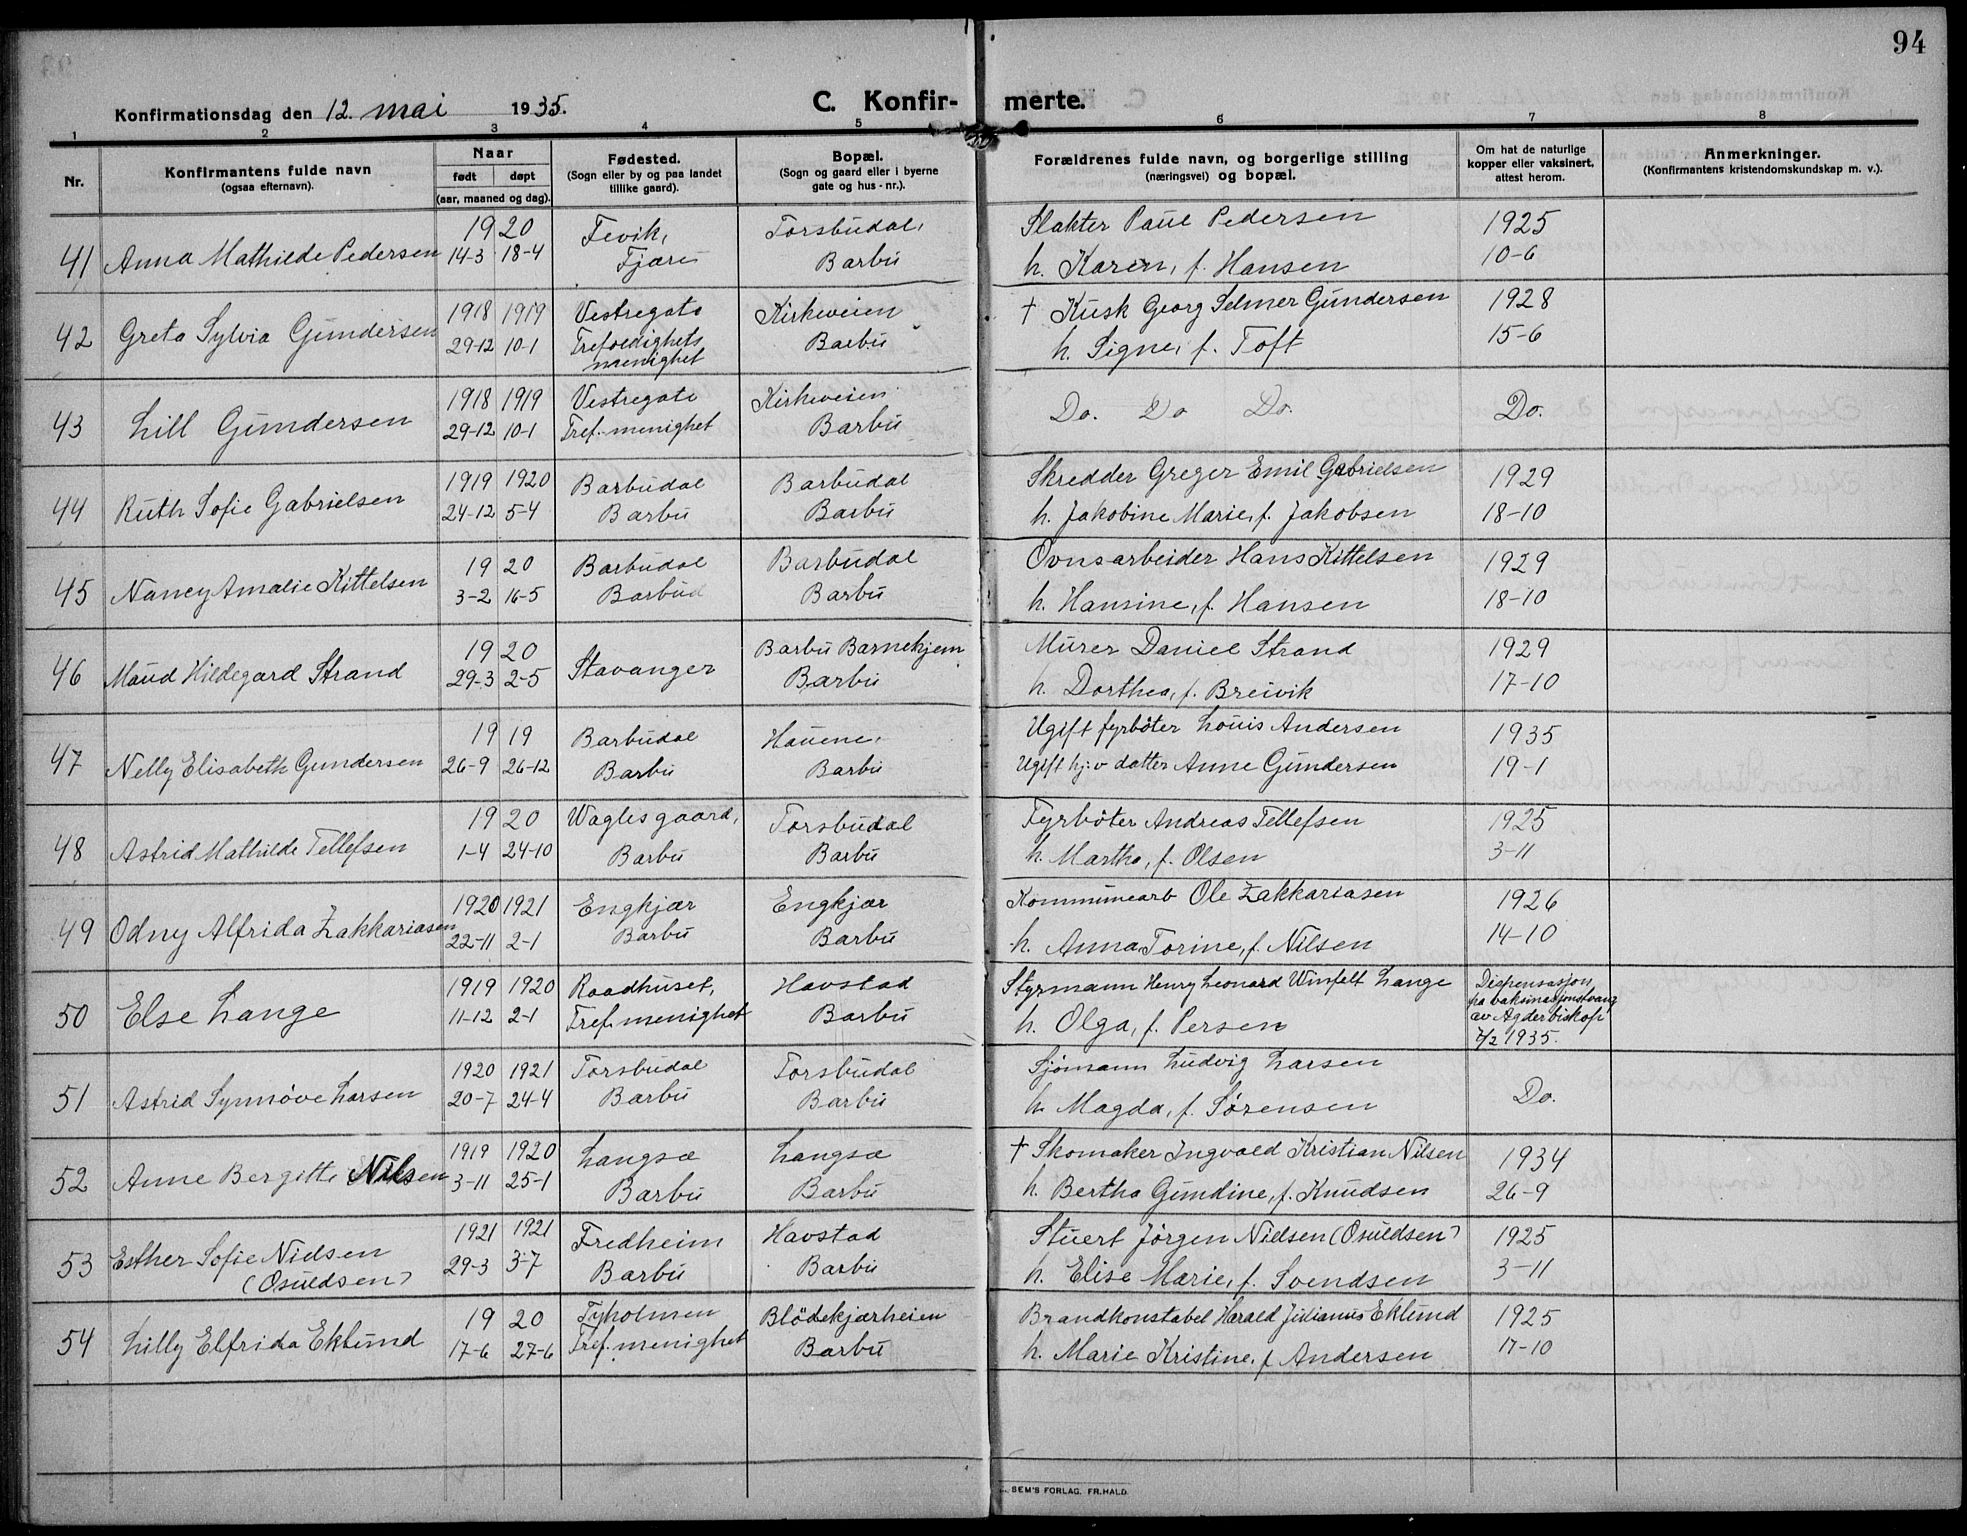 94
Konfirmationsdag den 12. mai 1935.
C. Konfir- merte.
1 2 3 4 5 6 7 8
Nr.
Konfirmantens fulde navn
(ogsaa efternavn).
Naar
født døpt
(aar, maaned og dag).
Fødested.
(Sogn eller by og paa landet
tillike gaard).
Bopæl.
(Sogn og gaard eller i byerne
gate og hus-nr.).
Forældrenes fulde navn, og borgerlige stilling
(næringsvei) og bopæl.
Om hat de naturlige
kopper eller vaksinert,
attest herom.
Anmerkninger.
(Konfirmantens kristendomskundskap m. v.).
1920 Fevik, Torsbudal, Slakter Paul Pedersen 1925
41 Anna Mathilde Pedersen 14-3 18-4 Fjære Barbu h. Karen, f. Hansen 10-6
1918 1919 Vestregate Kirkeveien † Kusk Georg Selmer Gundersen 1928
42 Greta Sylvia Gundersen 29-12 10-1 Trefoldighets Barbu h. Signe, f. Toft 15-6
menighet
1918 1919 Vestregate Kirkeveien
43 Lill Gundersen 29-12 10-1 Tref. menighet Barbu Do. Do Do. Do.
1919 1920 Barbudal Barbudal Skredder Greger Emil Gabrielsen 1929
44 Ruth Sofie Gabrielsen 24-12 5-4 Barbu Barbu h. Jakobine Marie, f. Jakobsen 18-10
1920 Barbudal Barbudal Ovnsarbeider Hans Kittelsen 1929
45 Nancy Amalie Kittelsen 3-2 16-5 Barbud Barbu h. Hansine, f. Hansen 18-10
1920 Barbu Barnehjem Murer Daniel Strand 1929
46 Maud Hildegard Strand 29-3 2-5 Stavanger Barbu h. Dorthea, f. Breivik 17-10
1919 Barbudal Hauene, Ugift fyrbøter Louis Andersen 1935
47 Nelly Elisabeth Gundersen 26-9 26-12 Barbu Barbu Ugift hj.v datter Anne Gundersen 19-1
1920 Wagles gaard, Torsbudal Fyrbøter Andreas Tellefsen 1925
48 Astrid Mathilde Tellefsen 1-4 24-10 Barbu Barbu h. Martha, f. Olsen 3-11
1920 1921 Engkjær Engkjær Kommunearb Ole Zakkariasen 1926
49 Odny Alfrida Zakkariasen 22-11 2-1 Barbu Barbu h. Anna Torine, f. Nilsen 14-10
1919 1920 Raadhuset, Havstad Styrmann Henry Leonard Winfelt Lange Dispensasjon
fra vaksinasjonstvang
50 Else Lange 11-12 2-1 Tref. menighet Barbu h. Olga, f. Persen av Agder biskop
7/2 1935.
1920 1921 Torsbudal Torsbudal Sjømann Ludvig Larsen
51 Astrid Synnøve Larsen 20-7 24-4 Barbu Barbu h. Magda, f. Sørensen Do.
1919 1920 Langsæ Langsæ † Skomaker Ingvald Kristian Nilsen 1934
52 Anne Bergitte Nilsen 3-11 25-1 Barbu Barbu h. Bertha Gundine, f. Knudsen 26-9
1921 1921 Fredheim Havstad Stuert Jørgen Nielsen (Osuldsen) 1925
53 Esther Sofie Nielsen 29-3 3-7 Barbu Barbu h. Elise Marie, f. Svendsen 3-11
(Osuldsen)
1920 Tyholmen Blödekjærheien Brandkonstabel Harald Julianus Eklund 1925
54 Lilly Elfrida Eklund 17-6 27-6 Tref. menighet Barbu h. Marie Kristine, f. Andersen 17-10
SEM'S FORLAG. FR.HALD.